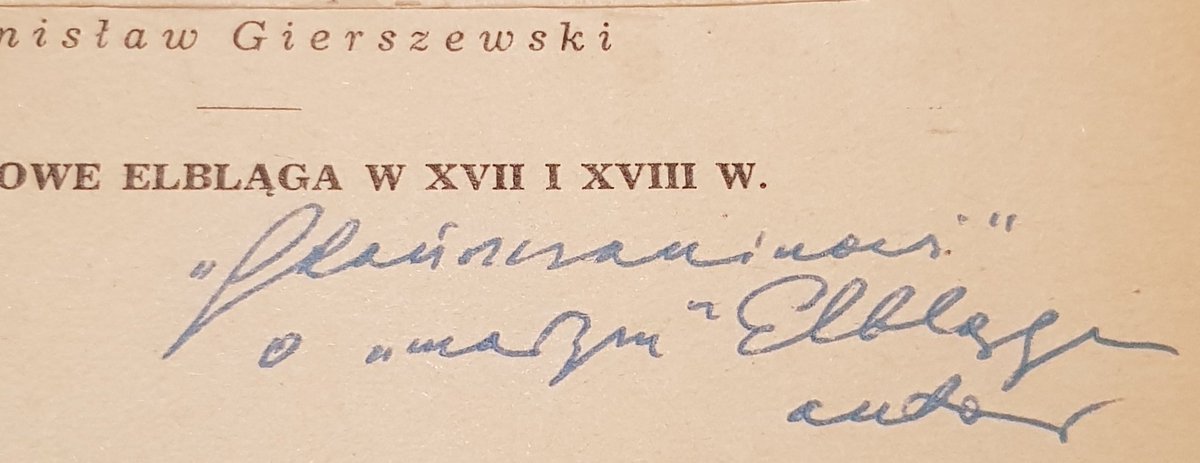 nisław Gierszewski
OWE ELBLĄGA W XVII I XVIII W.
„Gdańszczaninowi”
o „naszym” Elblągu
autor